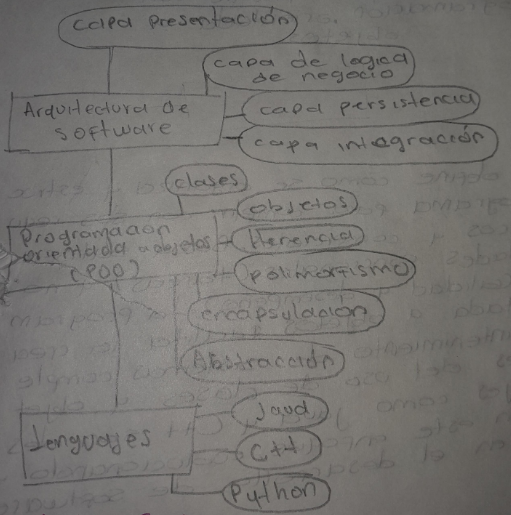 capa presentación
capa de logica
de negocio
Arquitectura de
software
capa persistencia
capa integración
clases
objetos
Programacion
orientada a objetos
(POO)
Herencia
polimorfismo
encapsulacion
Abstracción
Java
Lenguajes
C++
Python